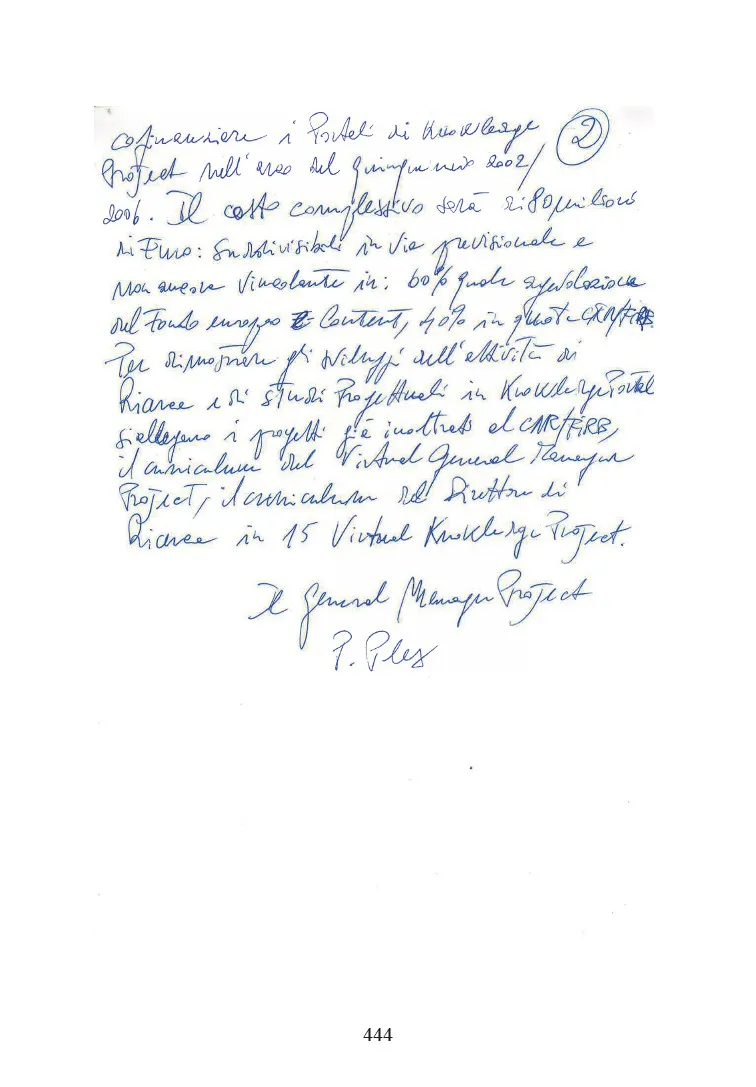 cofinanziare i Portali di Knowledge
②
Project nell'arco del quinquennio 2002/
2006. Il costo complessivo sarà di 80 milioni
di Euro: suddivisibili in via previsionale e
non ancora vincolante in: 60% quale agevolazione
del Fondo europeo E Content, 40% in quota CNR/FIRB.
Per dimostrare gli sviluppi dell'attività di
Ricerca e di studi Progettuali in Knowledge Portal
si allegano i progetti già inoltrati al CNR/FIRB,
il curriculum del Virtual General Manager
Project, il curriculum del Direttore di
Ricerca in 15 Virtual Knowledge Project.
Il General Manager Project
444